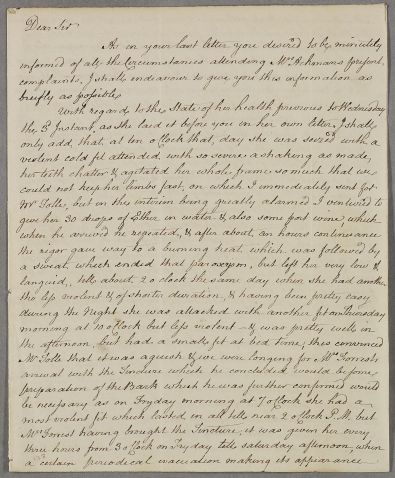 Dear Sir
As in your last letter you desir'd to be minutely
informed of all the Circumstances attending Mrs. Aikmans present
complaints, I shall endeavour to give you this information as
briefly as possible.
With regard to the State of her health previous to Wednesday
the 3d Instant, as she laid it before you in her own letter, I shall
only add, that, at ten o Clock that, day she was seized with a
violent cold fit attended with so severe a shaking as made,
her teeth chatter & agitated her whole frame so much that we
could not keep her limbs fast, on which I immediately sent for
Mr Tolle, but in the interim being greatly alarmed I ventured to
give her 30 drops of Ether in water & also some port wine which
when he arrived he repeated, & after about, an hours continuance
the rigor gave way to a burning heat, which, was followed by
a sweat, which ended that paroxysm, but left her very low &
languid, till about, 2 o clock the same day when she had another
tho less violent & of shorter duration, & having been pretty easy
during the Night she was attacked with another fit on Thursday
morning at 10 o Clock but less violent – & was pretty well in
the afternoon, but had a small fit at bed time; this convinced
Mr Tolle that it was aguish & we were longing for Mrs Forrests
arrival with the Tincture which he concluded would be some
preparation of the Bark which he was further confirmed would
be necessary as on Fryday morning at 7 o Clock she had a
most violent fit which lasted in all till near 2 o Clock P.M. but
Mrs Forrest having brought the Tincture, it was given her every
three hours from 3 o Clock on Fryday till saturday afternoon, when
a certain periodical evacuation making its appearance